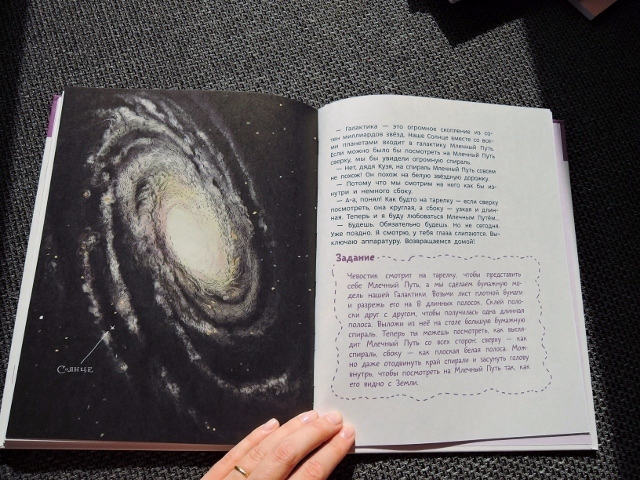 Солнце
— Галактика — это огромное скопление из со-
тен миллиардов звёзд. Наше Солнце вместе со все-
ми планетами входит в галактику Млечный Путь.
Если можно было бы посмотреть на Млечный Путь
сверху, мы бы увидели огромную спираль.
— Нет, дядя Кузя, на спираль Млечный Путь совсем
не похож! Он похож на белую звёздную дорожку.
— Потому что мы смотрим на него как бы из-
нутри и немного сбоку.
— А-а, понял! Как будто на тарелку — если сверху
посмотреть, она круглая, а сбоку — узкая и длин-
ная. Теперь и я буду любоваться Млечным Путём.
— Будешь. Обязательно будешь. Но не сегодня.
Уже поздно. Я смотрю, у тебя глаза слипаются. Вы-
ключаю аппаратуру. Возвращаемся домой!
Задание
Чевостик смотрит на тарелку, чтобы представить
себе Млечный Путь, а мы сделаем бумажную мо-
дель нашей Галактики. Возьми лист плотной бумаги
и разрежь его на 8 длинных полосок. Склей поло-
ски друг с другом, чтобы получилась одна длинная
полоса. Выложи из неё на столе большую бумажную
спираль. Теперь ты можешь посмотреть, как выгля-
дит Млечный Путь со всех сторон: сверху — как
спираль, сбоку — как плоская белая полоса. Мож-
но даже отодвинуть край спирали и засунуть голову
внутрь, чтобы посмотреть на Млечный Путь так, как
его видно с Земли.